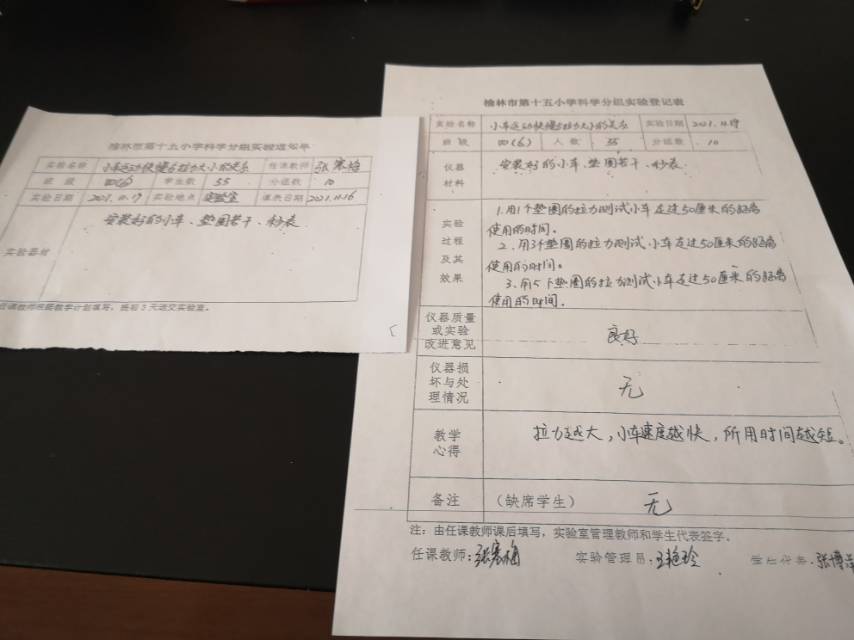 榆林市第十五小学科学分组实验通知单
实验名称 小车运动快慢与拉力大小的关系 任课教师 张寒梅
班级 四(6) 学生数 55 分组数 10
实验日期 2021.11.17 实验地点 实验室 填表日期 2021.11.16
实验器材 安装好的小车、垫圈若干、秒表
任课教师根据教学计划填写，提前3天送交实验室。
榆林市第十五小学科学分组实验登记表
实验名称 小车运动快慢与拉力大小的关系 实验日期 2021.11.17
班级 四(6) 人数 55 分组数 10
仪器材料 安装好的小车、垫圈若干、秒表
实验过程及其效果
1.用1个垫圈的拉力测试小车走过50厘米的距离
使用的时间。
2、用3个垫圈的拉力测试小车走过50厘米的距离
使用的时间。
3、用5个垫圈的拉力测试小车走过50厘米的距离
使用的时间。
仪器质量或实验改进意见 良好
仪器损坏与处理情况 无
教学心得 拉力越大，小车速度越快，所用时间越短。
备注 (缺席学生) 无
注：由任课教师课后填写，实验室管理教师和学生代表签字。
任课教师：张寒梅 实验管理员：王艳玲 学生代表：张博